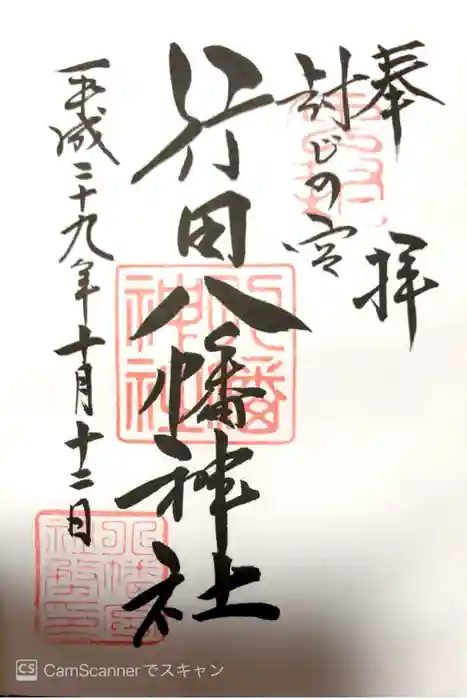 奉拝
封じの宮
行田八幡神社
平成二十九年十月十二日
八幡神社
CS CamScannerでスキャン